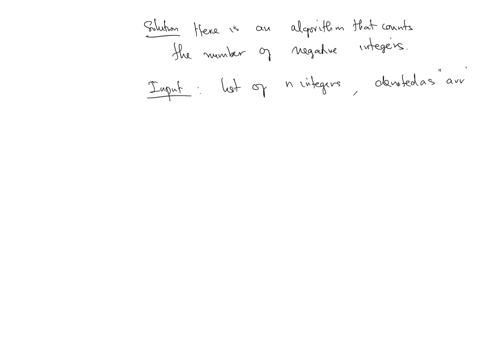 Solution Here is an algorithm that counts
the number of negative integers.
Input : list of n integers, denoted as "arr"